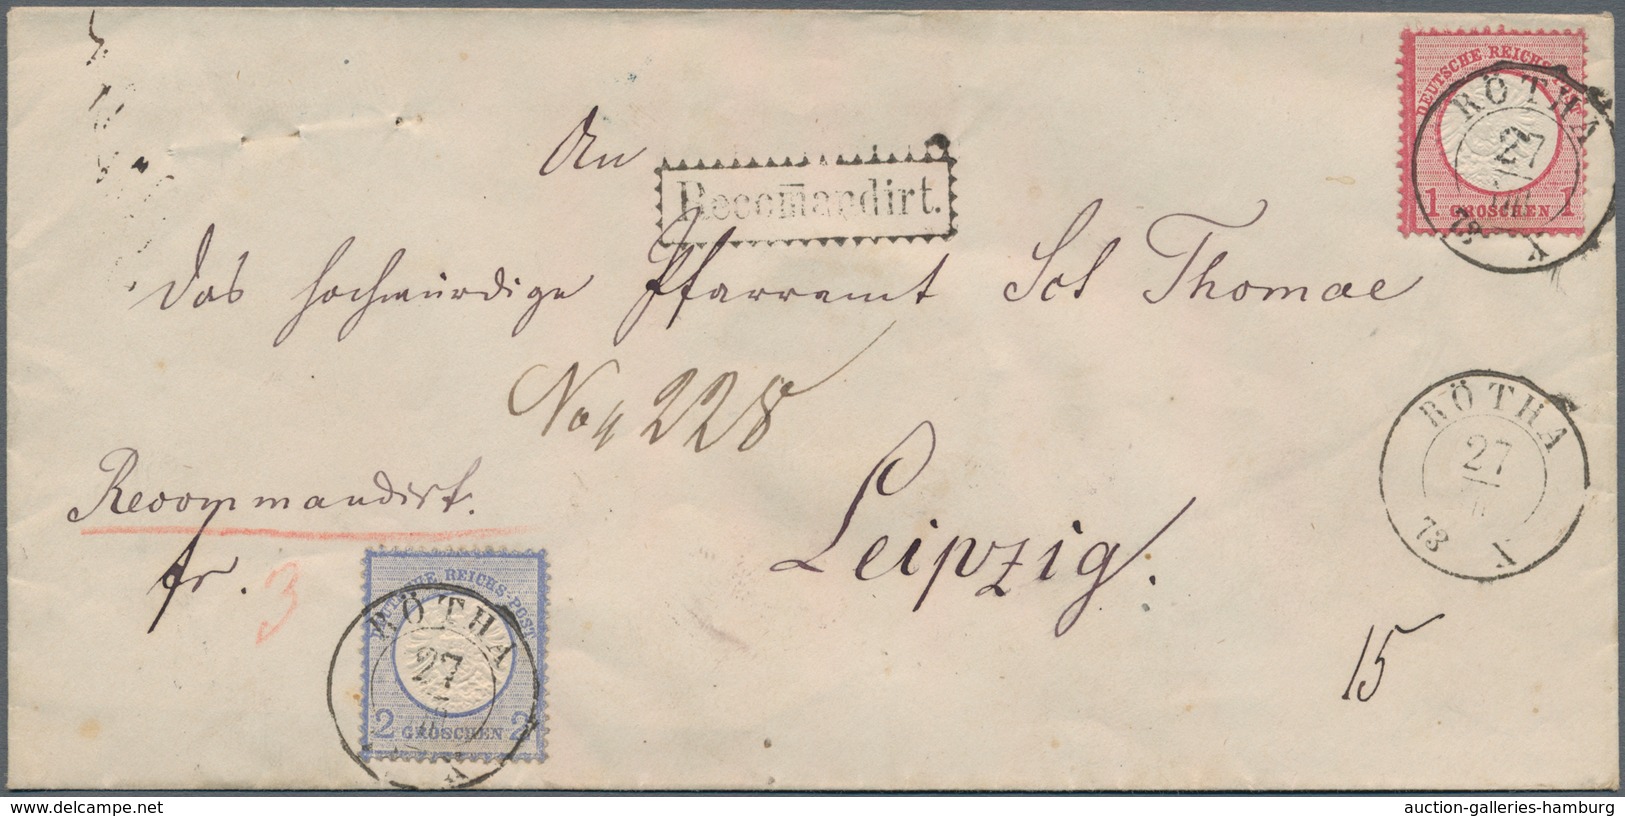 DEUTSCHE REICHS-POST
1 GROSCHEN 1
RÖTHA
27
73
An
Recom̅andirt.
das hochwürdige Pfarramt Sct Thomae
No 228
RÖTHA
27
73
Recommandirt.
Leipzig.
fr.
3
DEUTSCHE REICHS-POST
2 GROSCHEN 2
RÖTHA
27
15
www.delcampe.net
auction-galleries-hamburg